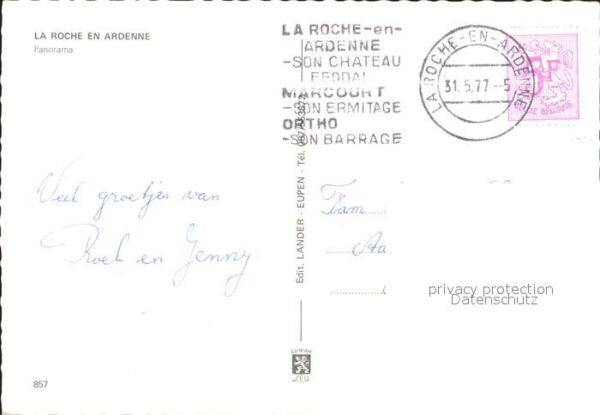 LA ROCHE EN ARDENNE
Panorama
LA ROCHE-en-
ARDENNE
-SON CHATEAU
FEODAL
MARCOURT
-SON ERMITAGE
ORTHO
-SON BARRAGE
LA ROCHE-EN-ARDENNE
31.5.77 --5
5F
Veel groetjes van
Roel en Jenny
Edit. LANDER - EUPEN - Tél.
Fam
Aa
privacy protection
Datenschutz
857